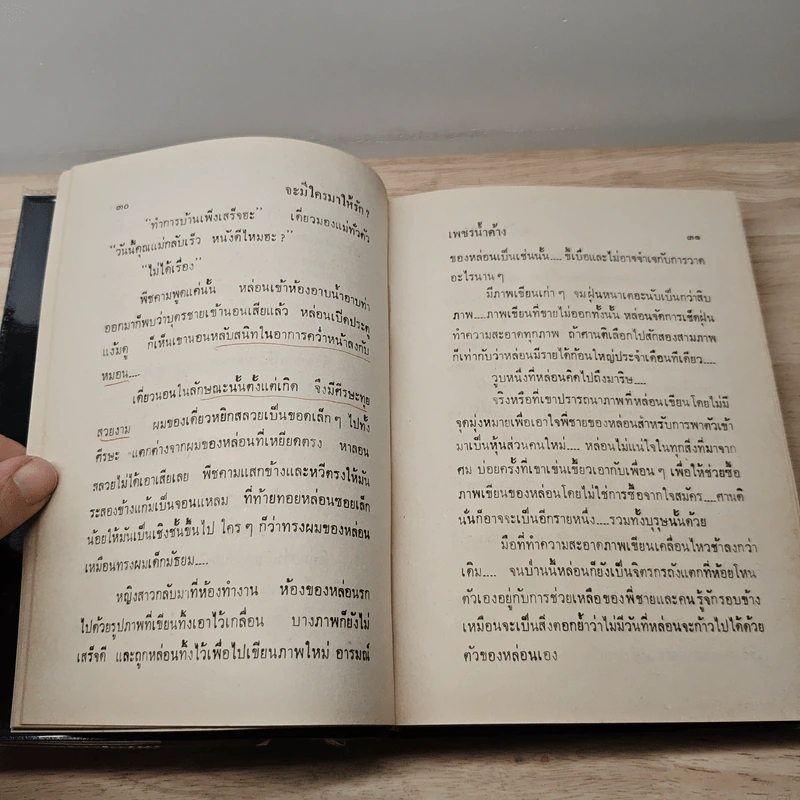 ๓๐
จะมีใครมาให้รัก ?
"ทำการบ้านเพิ่งเสร็จฮะ" เดี่ยวมองแม่ทั่วตัว
"วันนี้คุณแม่กลับเร็ว หนังดีไหมฮะ ?"
"ไม่ได้เรื่อง"
พืชคามพูดแค่นั้น หล่อนเข้าห้องอาบน้ำอาบท่า
ออกมาก็พบว่าบุตรชายเข้านอนเสียแล้ว หล่อนเปิดประตู
แง้มดู ก็เห็นเขานอนหลับสนิทในอาการคว่ำหน้าลงกับ
หมอน....
เดี่ยวนอนในลักษณะนั้นตั้งแต่เกิด จึงมีศีรษะทุย
สวยงาม ผมของเดี่ยวหยิกสลวยเป็นขอดเล็ก ๆ ไปทั้ง
ศีรษะ แตกต่างจากผมของหล่อนที่เหยียดตรง หาลอน
สลวยไม่ได้เอาเสียเลย พืชคามแสกข้างและหวีตรงให้มัน
ระสองข้างแก้มเป็นจอนแหลม ที่ท้ายทอยหล่อนซอยเล็ก
น้อยให้มันเป็นเชิงชั้นขึ้นไป ใคร ๆ ก็ว่าทรงผมของหล่อน
เหมือนทรงผมเด็กมัธยม....
หญิงสาวกลับมาที่ห้องทำงาน ห้องของหล่อนรก
ไปด้วยรูปภาพที่เขียนทิ้งเอาไว้เกลื่อน บางภาพก็ยังไม่
เสร็จดี และถูกหล่อนทิ้งไว้เพื่อไปเขียนภาพใหม่ อารมณ์
เพชรน้ำค้าง
๓๑
ของหล่อนเป็นเช่นนั้น.... ขี้เบื่อและไม่อาจจำเจกับการวาด
อะไรนาน ๆ
มีภาพเขียนเก่า ๆ จมฝุ่นหนาเตอะนับเป็นกว่าสิบ
ภาพ....ภาพเขียนที่ขายไม่ออกทั้งนั้น หล่อนจัดการเช็ดฝุ่น
ทำความสะอาดทุกภาพ ถ้าศานติเลือกไปสักสองสามภาพ
ก็เท่ากับว่าหล่อนมีรายได้ก้อนใหญ่ประจำเดือนทีเดียว....
วูบหนึ่งที่หล่อนคิดไปถึงมาริษ....
จริงหรือที่เขาปรารถนาภาพที่หล่อนเขียนโดยไม่มี
จุดมุ่งหมายเพื่อเอาใจพี่ชายของหล่อนสำหรับการพาตัวเข้า
มาเป็นหุ้นส่วนคนใหม่.... หล่อนไม่แน่ใจในทุกสิ่งที่มาจาก
ศม บ่อยครั้งที่เขาเช่นเขี้ยวเอากับเพื่อน ๆ เพื่อให้ช่วยซื้อ
ภาพเขียนของหล่อนโดยไม่ใช่การซื้อจากใจสมัคร....ศานติ
นั่นก็อาจจะเป็นอีกรายหนึ่ง....รวมทั้งบุรุษนั้นด้วย
มือที่ทำความสะอาดภาพเขียนเคลื่อนไหวช้าลงกว่า
เดิม.... จนป่านนี้หล่อนก็ยังเป็นจิตรกรถังแตกที่ห้อยโหน
ตัวเองอยู่กับการช่วยเหลือของพี่ชายและคนรู้จักรอบข้าง
เหมือนจะเป็นสิ่งตอกย้ำว่าไม่มีวันที่หล่อนจะก้าวไปได้ด้วย
ตัวของหล่อนเอง